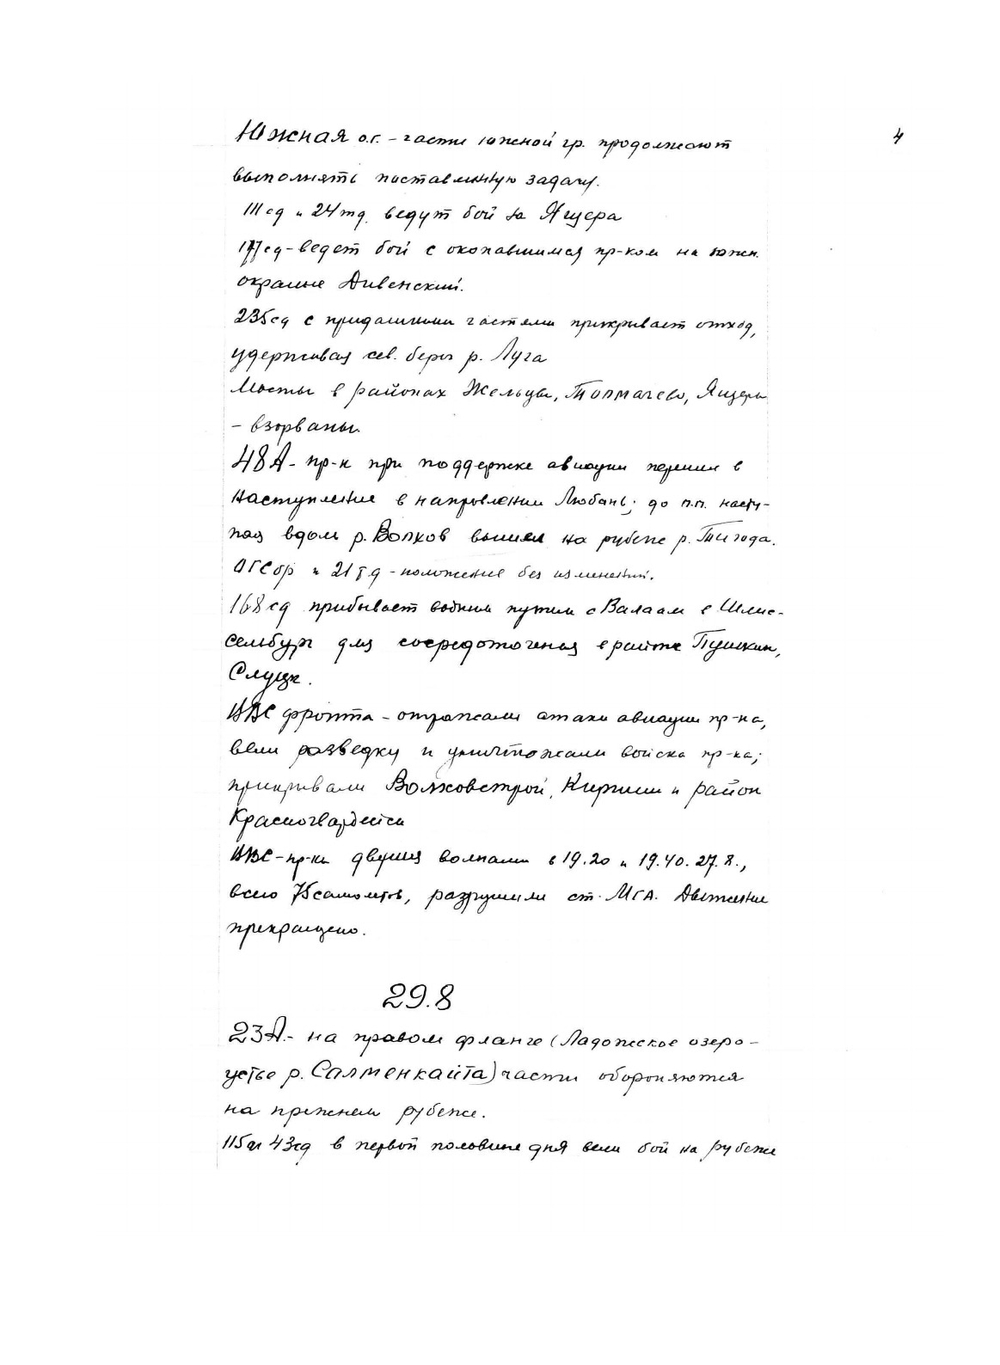 4
Южная о.г. – части южной гр. продолжают
выполнять поставленную задачу.
111сд и 24тд. ведут бой за Ящера
177сд - ведет бой с окопавшимся пр-ком на южн.
окраине Дивенский.
235сд с приданными частями прикрывает отход,
удерживая сев. берег р. Луга
Мосты в районах Жельцы, Толмачево, Ящера
– взорваны.
48А - пр-к при поддержке авиации перешел в
наступление в направлении Любань; до п.п. насту-
пая вдоль р. Волхов вышел на рубеж р. Тигода.
и 21тд - положение без изменений.
168сд прибывает водным путем с Валаам в Шлис-
сельбург для сосредоточения в районе Пушкин,
Слуцк.
ВВС фронта – отражали атаки авиации пр-ка,
вели разведку и уничтожали войска пр-ка;
прикрывали Волховстрой, Кириши и район
Красногвардейск
ВВС - пр-ка двумя волнами в 19.20 и 19.40. 27.8.,
всего 75 самолетов, разрушили ст. МГА. Движение
прекращено.
29.8
23А.- на правом фланге (Ладожское озеро –
устье р. Салменкайта) части обороняются
на прежнем рубеже.
115 и 43сд в первой половине дня вели бой на рубеже